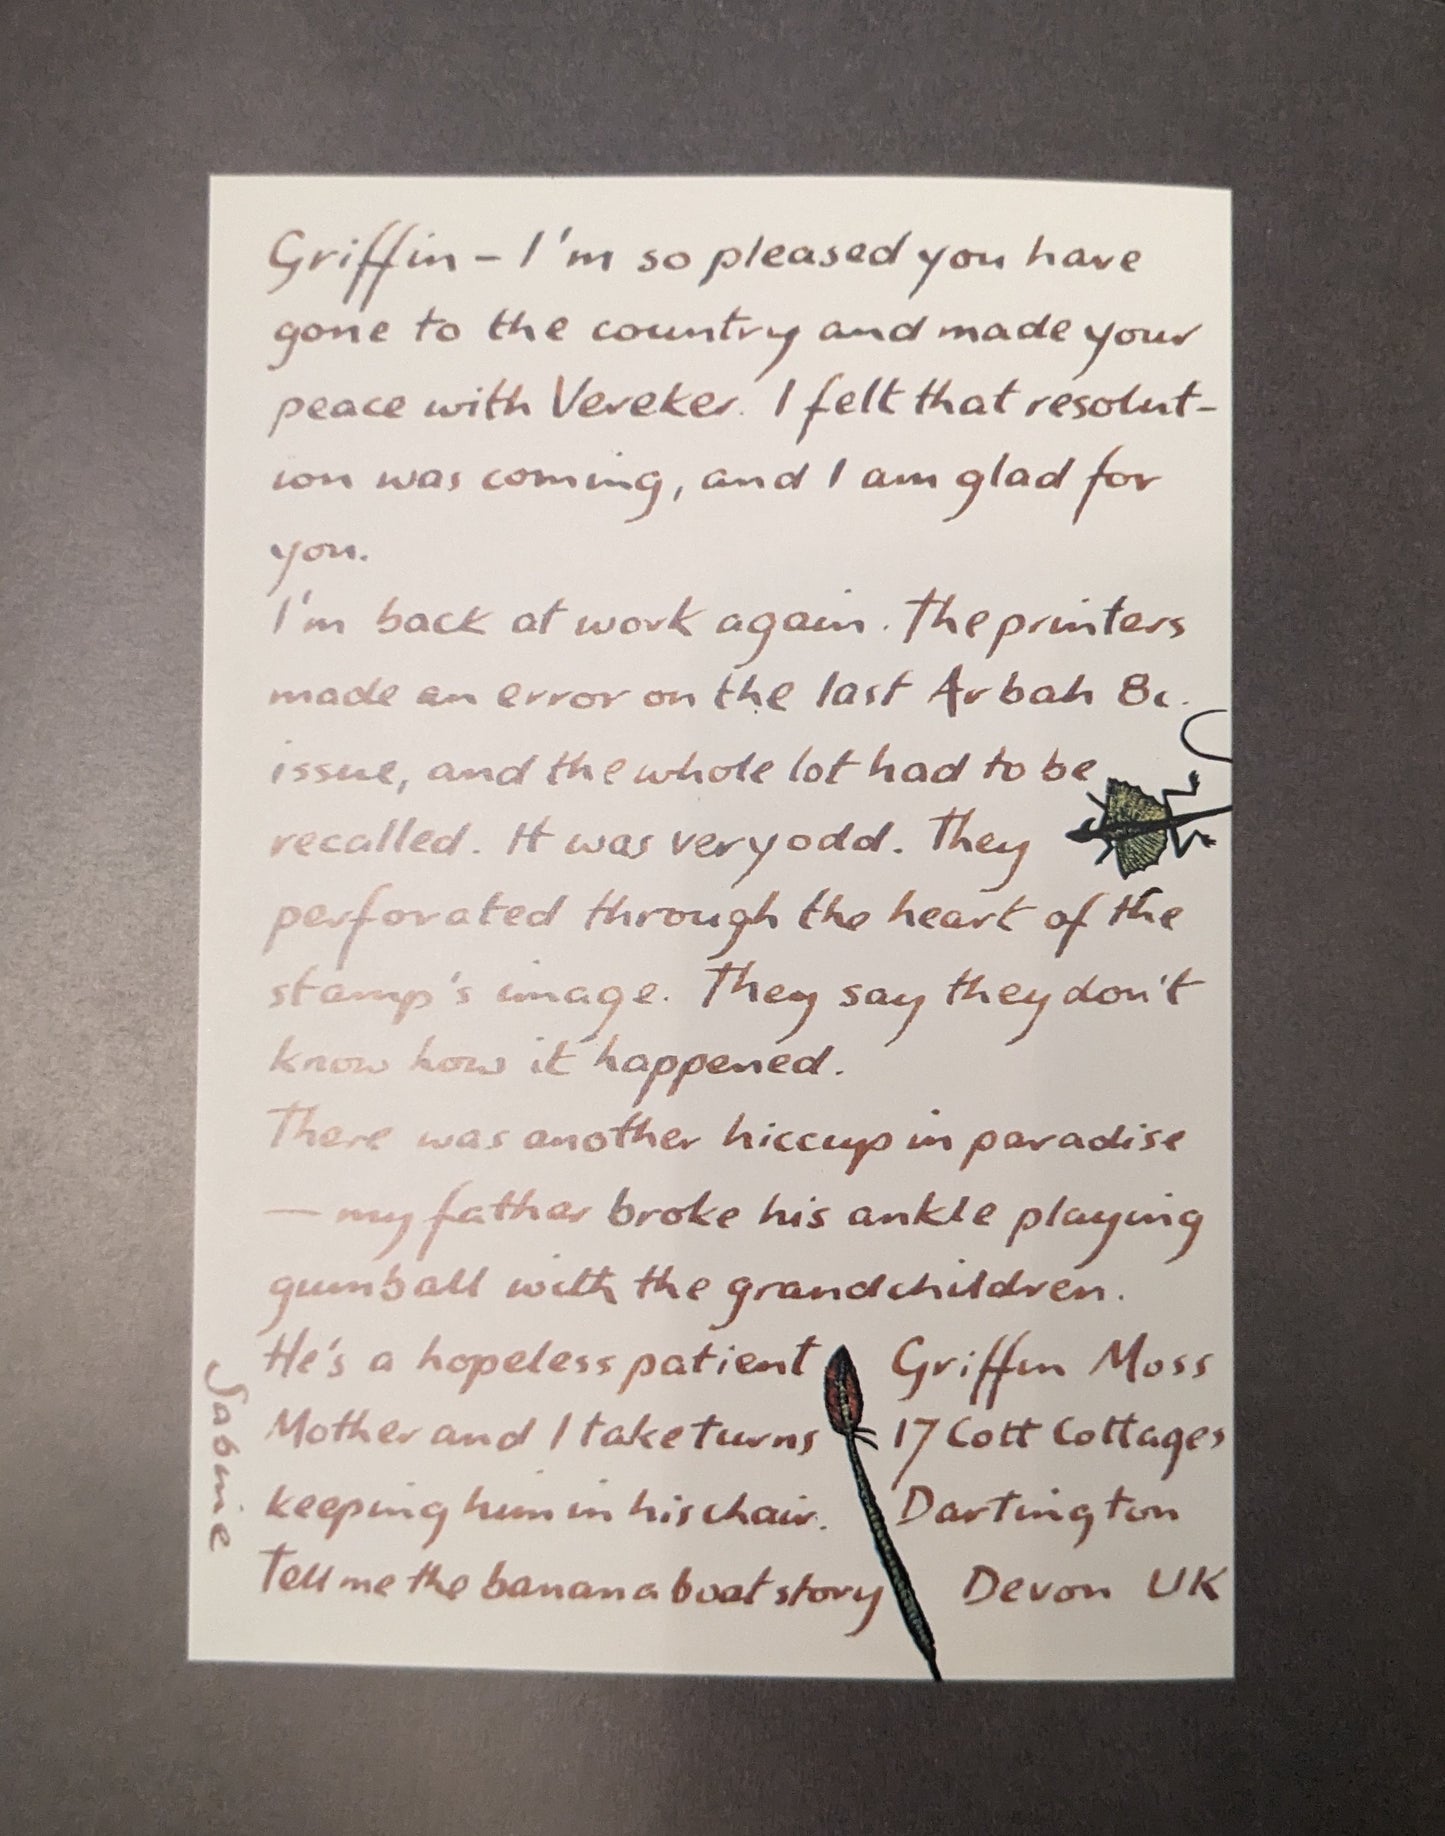 Griffin – I'm so pleased you have
gone to the country and made your
peace with Vereker. I felt that resolut-
ion was coming, and I am glad for
you.
I'm back at work again. The printers
made an error on the last Arbah 8c.
issue, and the whole lot had to be
recalled. It was very odd. They
perforated through the heart of the
stamp's image. They say they don't
know how it happened.
There was another hiccup in paradise
— my father broke his ankle playing
gumball with the grandchildren.
He's a hopeless patient
Mother and I take turns
keeping him in his chair.
Tell me the banana boat story
Sabine
Griffin Moss
17 Cott Cottages
Dartington
Devon UK